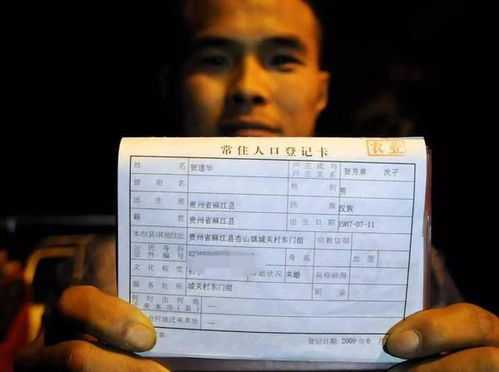 常住人口登记卡 农业
姓名 贺道华 户主或与户主关系 贺芳泉 次子
曾用名 性别 男
出生地 贵州省麻江县 民族 汉族
籍贯 贵州省麻江县 出生日期 1987-07-11
本市(县)其他住址 贵州省麻江县杏山镇城关村东门组 宗教信仰
公民身份证件编号 52 身高 血型
文化程度 婚姻状况 未婚 兵役状况
服务处所 城关村东门组 职业
何时由何地迁来本市(县) —
何时由何地迁来本址 —
登记日期: 2009年6月